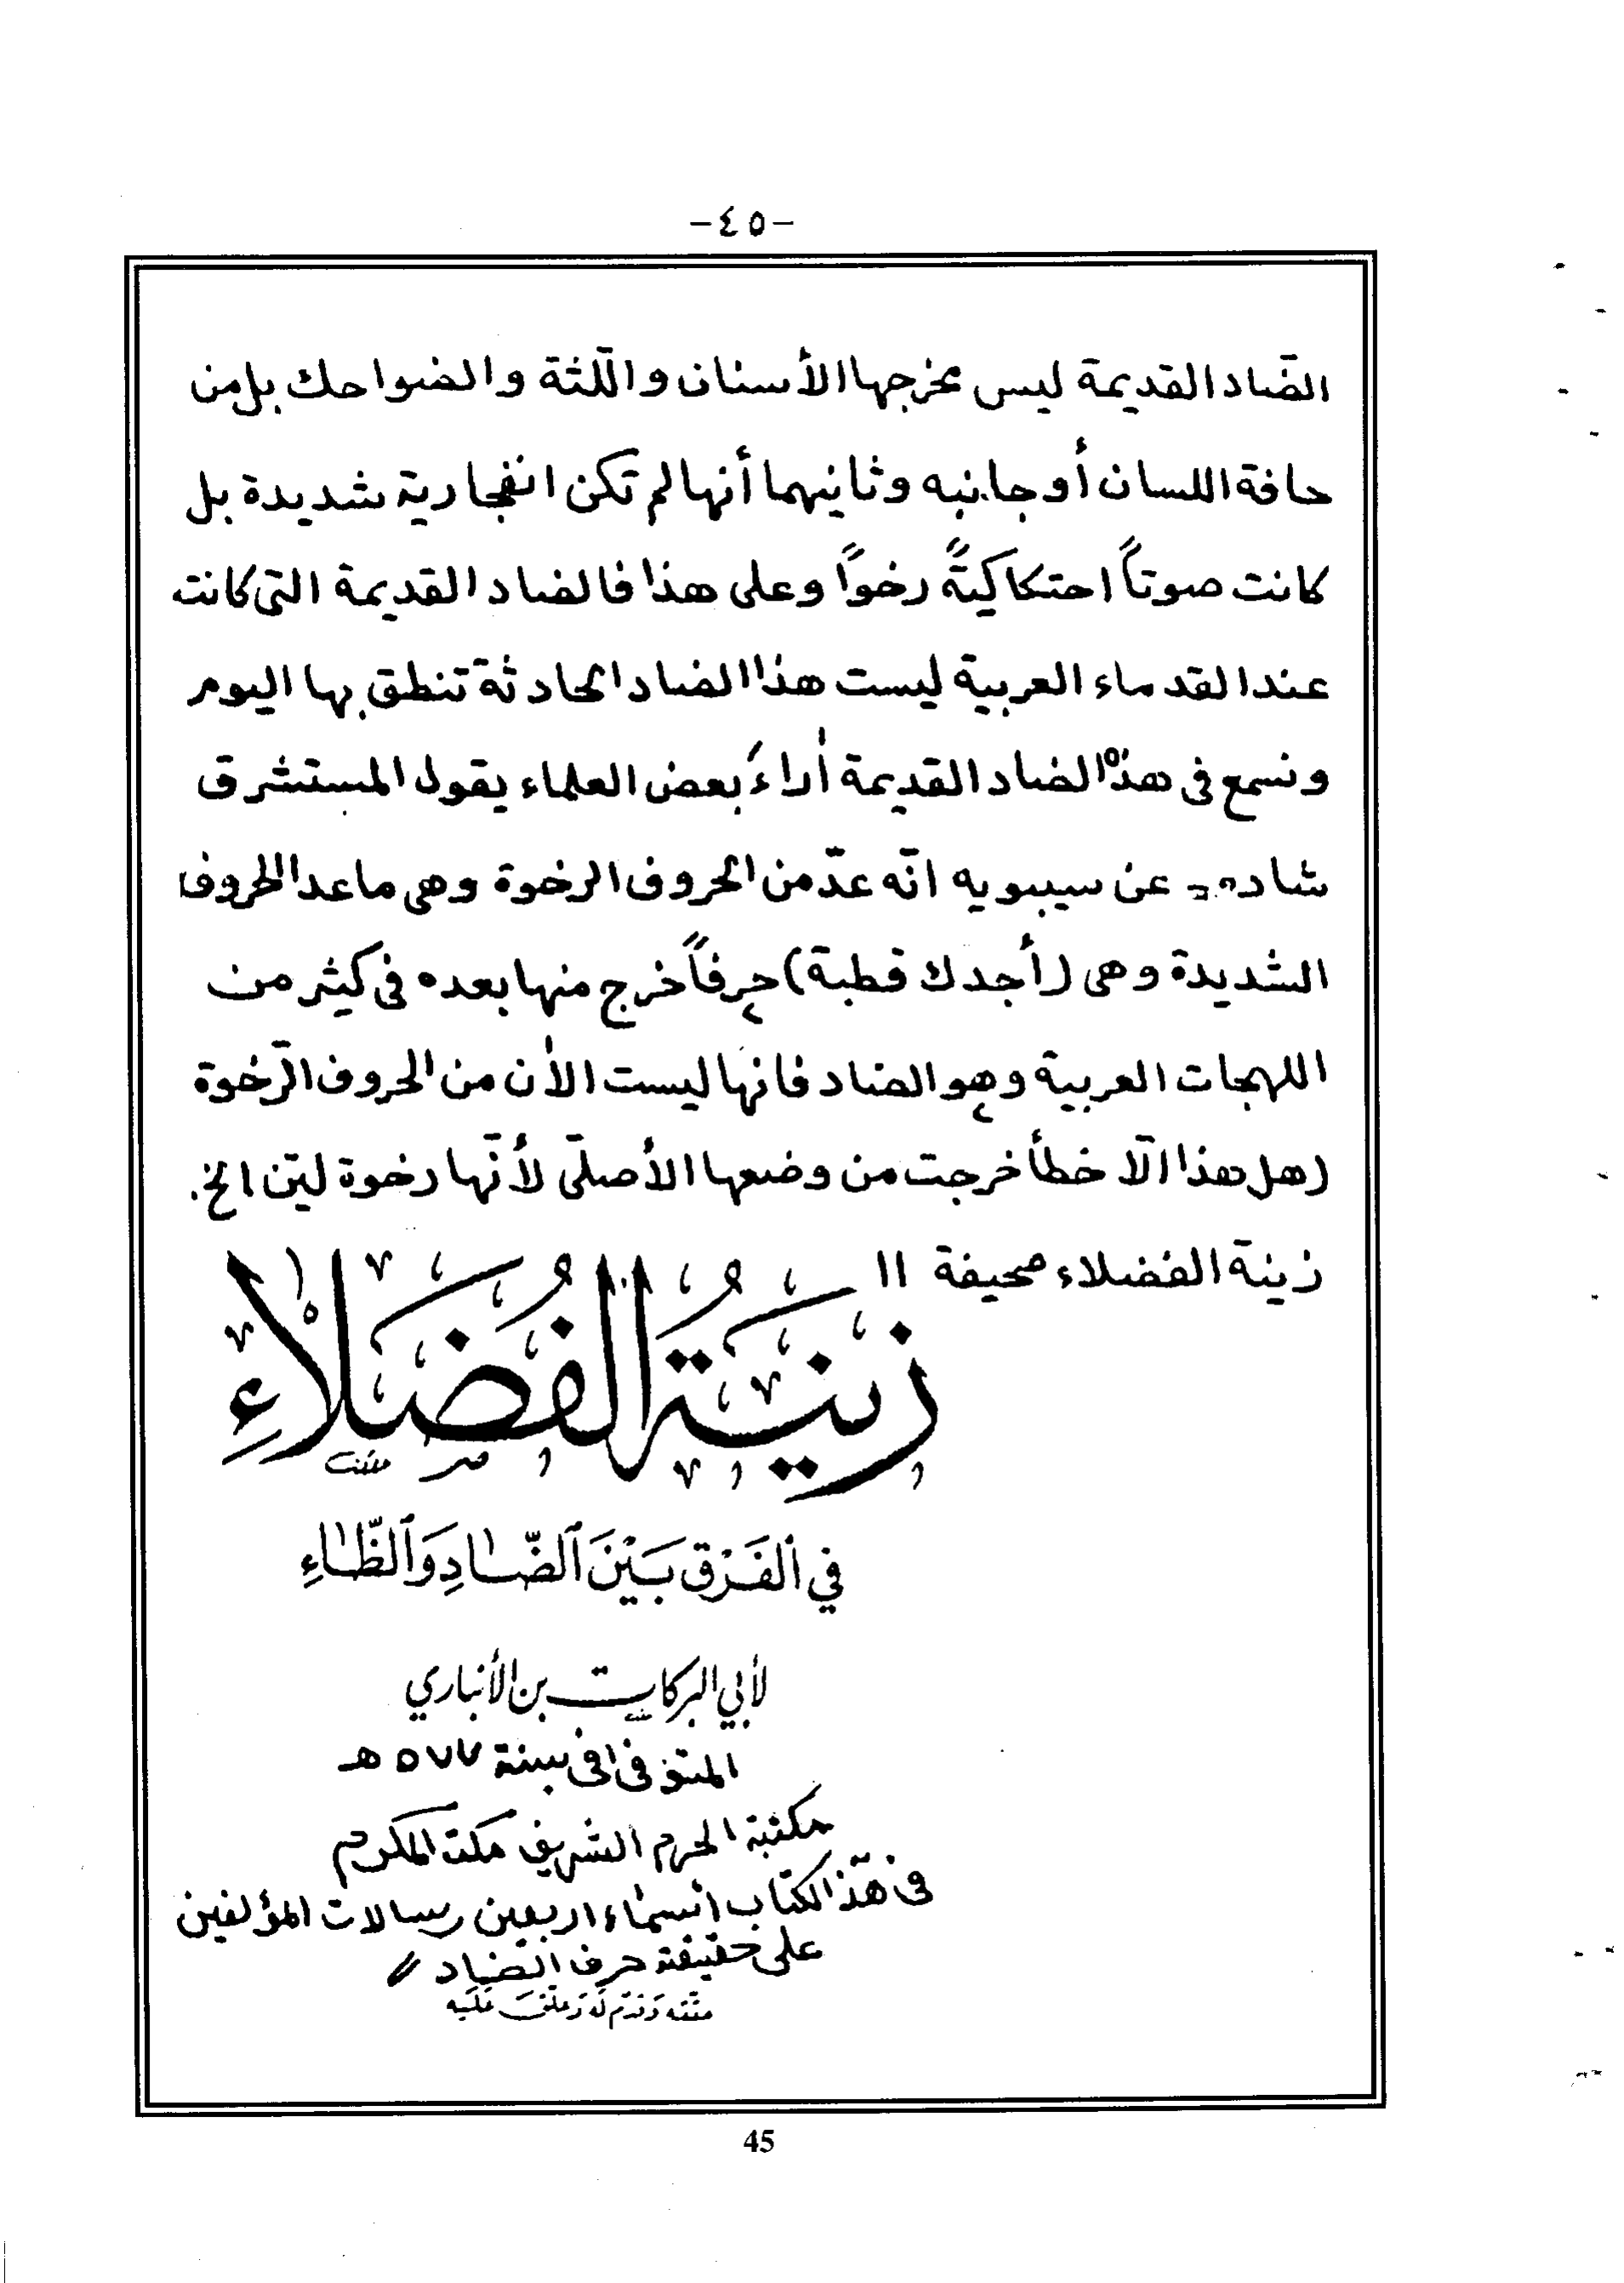 -٤٥-
الضّاد القديمة ليس مخرجها الأسنان واللّثة والضواحك بل من
حافة اللسان أو جانبه وثانيهما أنها لم تكن انفجارية شديدة بل
كانت صوتاً احتكاكيّةً رخواً وعلى هذا فالضاد القديمة التى كانت
عند القدماء العربية ليست هذا الضاد الحادثة تنطق بها اليوم
ونسمع فى هذه الضاد القديمة أراءَ بعض العلماء يقول المستشرق
شاده عن سيبويه انّه عدّ من الحروف الرخوة وهى ماعدا الحروف
الشديدة وهى (أجدك قطبة) حرفاً خرج منها بعده فى كثير من
اللهجات العربية وهو الضاد فانها ليست الأن من الحروف الرّخوة
(هل هذا الّا خطأ خرجت من وضعها الأصلّى لأنّها رخوة ليّن الخ.
زينة الفضلاء صحيفة ١١
زِينَةُ الفُضَلَاءِ
فِي الفَرْق بَيْنَ الضّادِ وَالظّاءِ
لأبي البركات بن الأنباري
المتوفى فى سنة ٥٧٧ هـ
مكتبة الحرم الشريف مكة المكرم
فى هذا الكتاب أسماء اربعين رسالات المؤلفين
على حقيقة حرف الضاد //
حققه وقدم له وعلق عليه
45